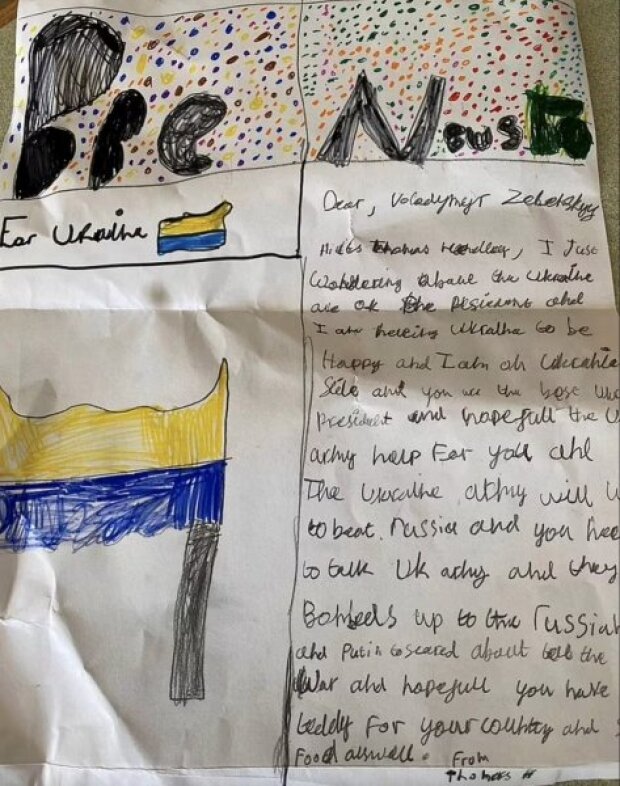 Pre News
For Ukraine
Dear, Voladymyr Zelenskyy
Thomas I Just
Wondering about the Ukraine
are ok the Presidant and
I am Ukraine to be
Happy and I am on Ukraine
Side and you are the best
President and hopefull the
army help For you and
The Ukraine army will
to beat. russia and you
to talk UK army and they
up to the russian
and Putin to scared about the
War and hopefull you have
teddy For your country and
Food aswell. From
Thomas H